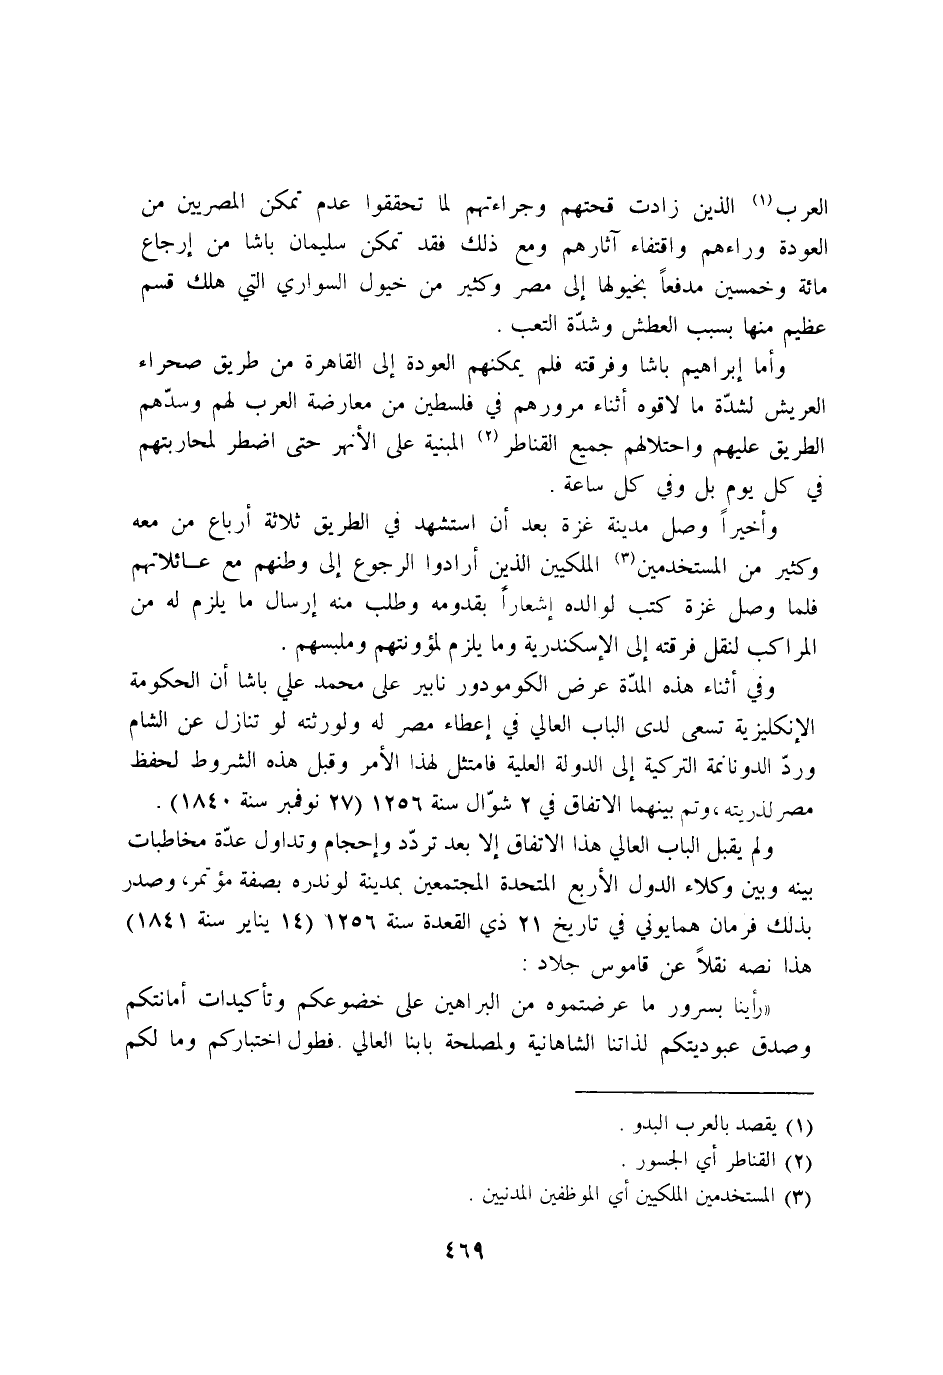 العرب(١) الذين زادت قحتهم وجراءتهم لما تحققوا عدم تمكن المصريين من
العودة وراءهم واقتفاء آثارهم ومع ذلك فقد تمكن سليمان باشا من إرجاع
مائة وخمسين مدفعاً بخيولها إلى مصر وكثير من خيول السواري التي هلك قسم
عظيم منها بسبب العطش وشدّة التعب .
وأما إبراهيم باشا وفرقته فلم يمكنهم العودة إلى القاهرة من طريق صحراء
العريش لشدّة ما لاقوه أثناء مرورهم في فلسطين من معارضة العرب لهم وسدّهم
الطريق عليهم واحتلالهم جميع القناطر(٢) المبنية على الأنهر حتى اضطر لمحاربتهم
في كل يوم بل وفي كل ساعة .
وأخيراً وصل مدينة غزة بعد أن استشهد في الطريق ثلاثة أرباع من معه
وكثير من المستخدمين(٣) الملكيين الذين أرادوا الرجوع إلى وطنهم مع عـائلاتهم
فلما وصل غزة كتب لوالده إشعاراً بقدومه وطلب منه إرسال ما يلزم له من
المراكب لنقل فرقته إلى الإسكندرية وما يلزم لمؤونتهم وملبسهم .
وفي أثناء هذه المدّة عرض الكومودور نابير على محمد علي باشا أن الحكومة
الإنكليزية تسعى لدى الباب العالي في إعطاء مصر له ولورثته لو تنازل عن الشام
وردّ الدونانمة التركية إلى الدولة العلية فامتثل لهذا الأمر وقبل هذه الشروط لحفظ
مصر لذريته ،وتم بينهما الاتفاق في ٢ شوّال سنة ١٢٥٦ (٢٧ نوفمبر سنة ١٨٤٠) .
ولم يقبل الباب العالي هذا الاتفاق إلا بعد تردّد وإحجام وتداول عدّة مخاطبات
بينه وبين وكلاء الدول الأربع المتحدة المجتمعين بمدينة لوندره بصفة مؤتمر، وصدر
بذلك فرمان همايوني في تاريخ ٢١ ذي القعدة سنة ١٢٥٦ (١٤ يناير سنة ١٨٤١)
هذا نصه نقلاً عن قاموس جلاد :
«رأينا بسرور ما عرضتموه من البراهين على خضوعكم وتأكيدات أمانتكم
وصدق عبوديتكم لذاتنا الشاهانية ولمصلحة بابنا العالي .فطول اختباركم وما لكم
(١) يقصد بالعرب البدو .
(٢) القناطر أي الجسور .
(٣) المستخدمين الملكيين أي الموظفين المدنيين .
٤٦٩